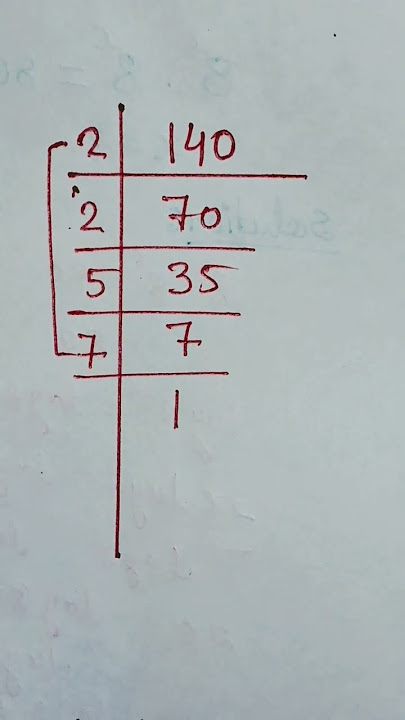 2 140
2 70
5 35
7 7
1